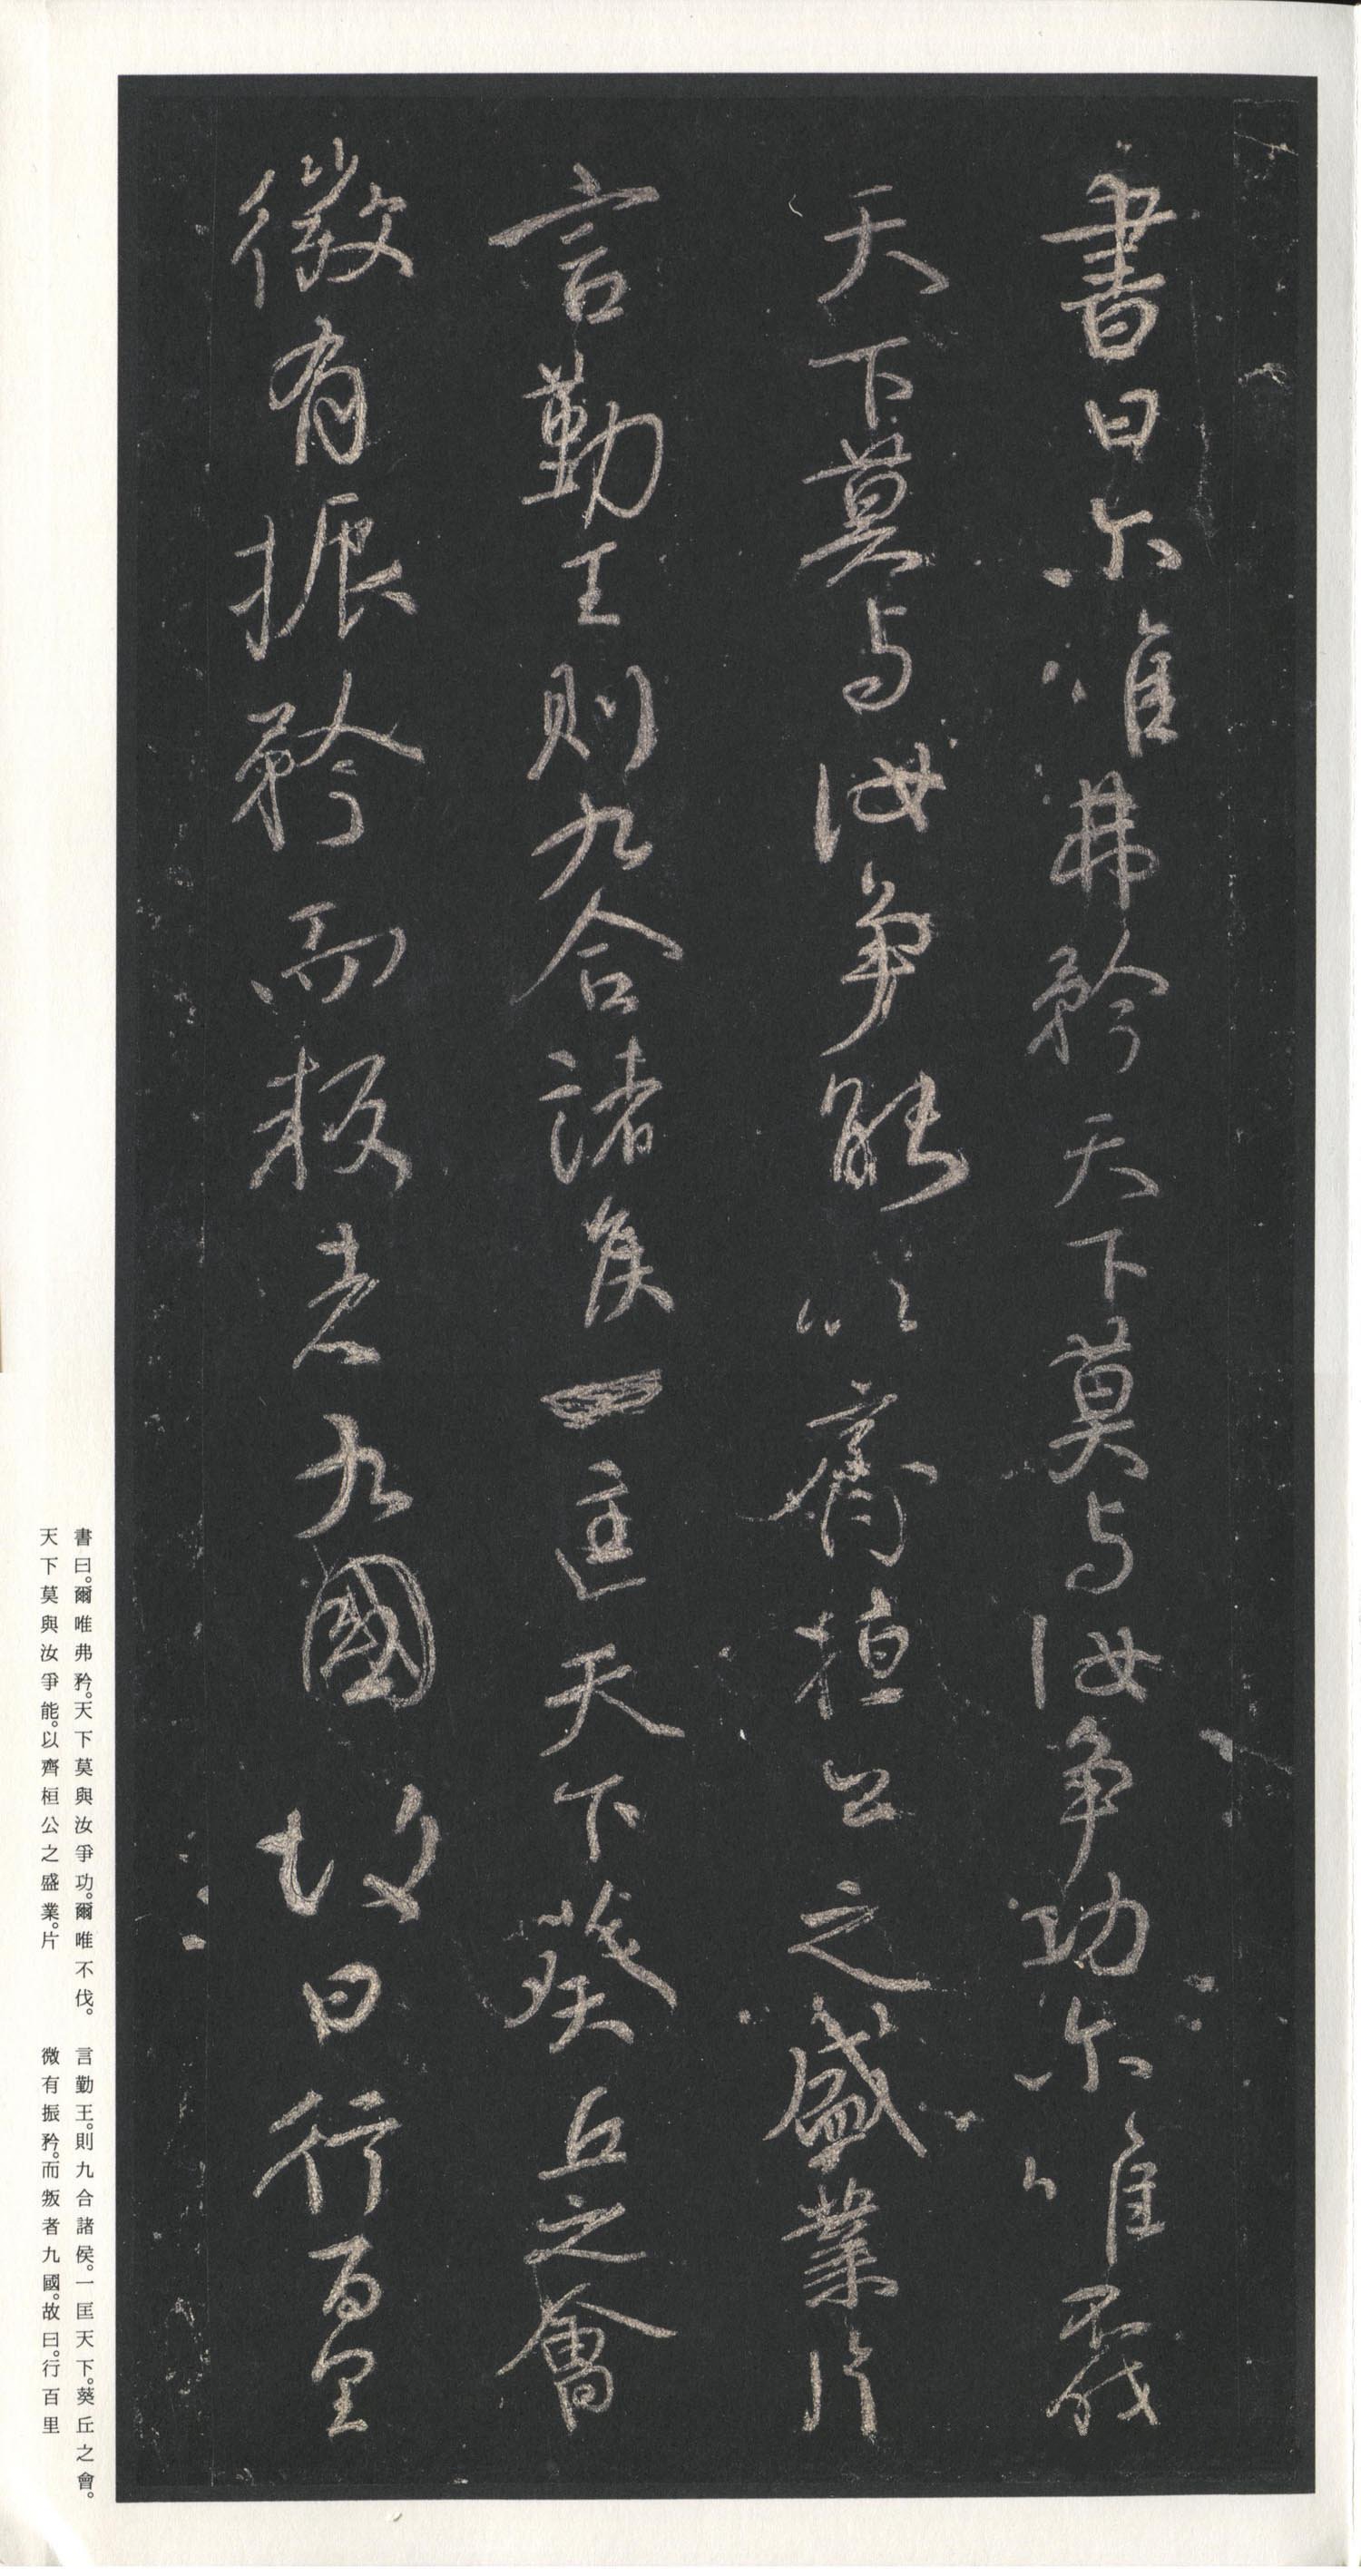 書曰尓唯弗矜天下莫与汝争功尓唯不伐
天下莫与汝争能以齊桓公之盛業片
言勤王則九合諸侯一匡天下葵丘之會
微有振矜而叛者九國故曰行百里
書曰。爾唯弗矜。天下莫與汝爭功。爾唯不伐。
天下莫與汝爭能。以齊桓公之盛業。片
言勤王。則九合諸侯。一匡天下。葵丘之會。
微有振矜。而叛者九國。故曰。行百里